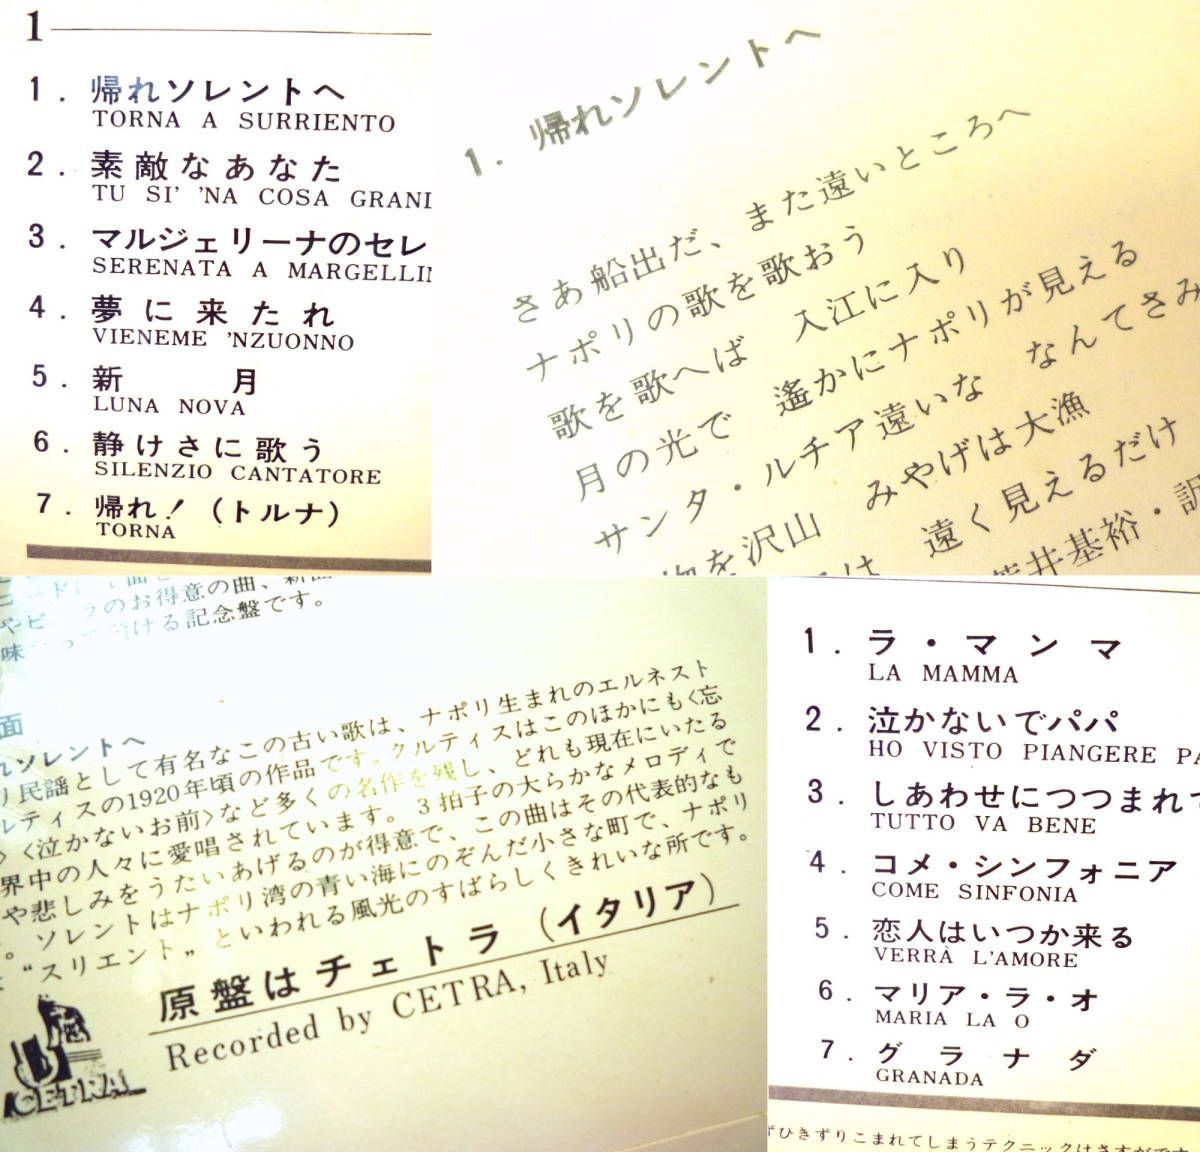 1
1. 帰れソレントへ
TORNA A SURRIENTO
2. 素敵なあなた
TU SI' 'NA COSA GRAND
3. マルジェリーナのセレ
SERENATA A MARGELLIN
4. 夢に来たれ
VIENEME 'NZUONNO
5. 新月
LUNA NOVA
6. 静けさに歌う
SILENZIO CANTATORE
7. 帰れ!(トルナ)
TORNA
1. 帰れソレントへ
さあ船出だ、また遠いところへ
ナポリの歌を歌おう
歌を歌へば 入江に入り
月の光で 遙かにナポリが見える
サンタ・ルチア遠いな なんてさみ
物を沢山 みやげは大漁
は 遠く見えるだけ
井基裕・訳
のお得意の曲、
ける記念盤です。
面
れソレントへ
リ民謡として有名なこの古い歌は、ナポリ生まれのエルネスト
ルティスの1920年頃の作品です。クルティスはこのほかにも〈忘
〉〈泣かないお前〉など多くの名作を残し、どれも現在にいたる
界中の人々に愛唱されています。3拍子の大らかなメロディで
や悲しみをうたいあげるのが得意で、この曲はその代表的なも
。ソレントはナポリ湾の青い海にのぞんだ小さな町で、ナポリ
“スリエント„といわれる風光のすばらしくきれいな所です。
原盤はチェトラ(イタリア)
Recorded by CETRA, Italy
CETRA
1. ラ・マンマ
LA MAMMA
2. 泣かないでパパ
HO VISTO PIANGERE PA
3. しあわせにつつまれて
TUTTO VA BENE
4. コメ・シンフォニア
COME SINFONIA
5. 恋人はいつか来る
VERRÀ L'AMORE
6. マリア・ラ・オ
MARIA LA O
7. グラナダ
GRANADA
ずひきずりこまれてしまうテクニックはさすがです